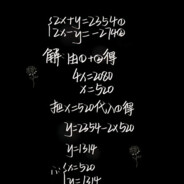 {2x+y=2354①
2x-y=-274②
解 由①+②得
4x=2080
x=520
把x=520代入①得
y=2354-2×520
y=1314
∴{x=520
y=1314